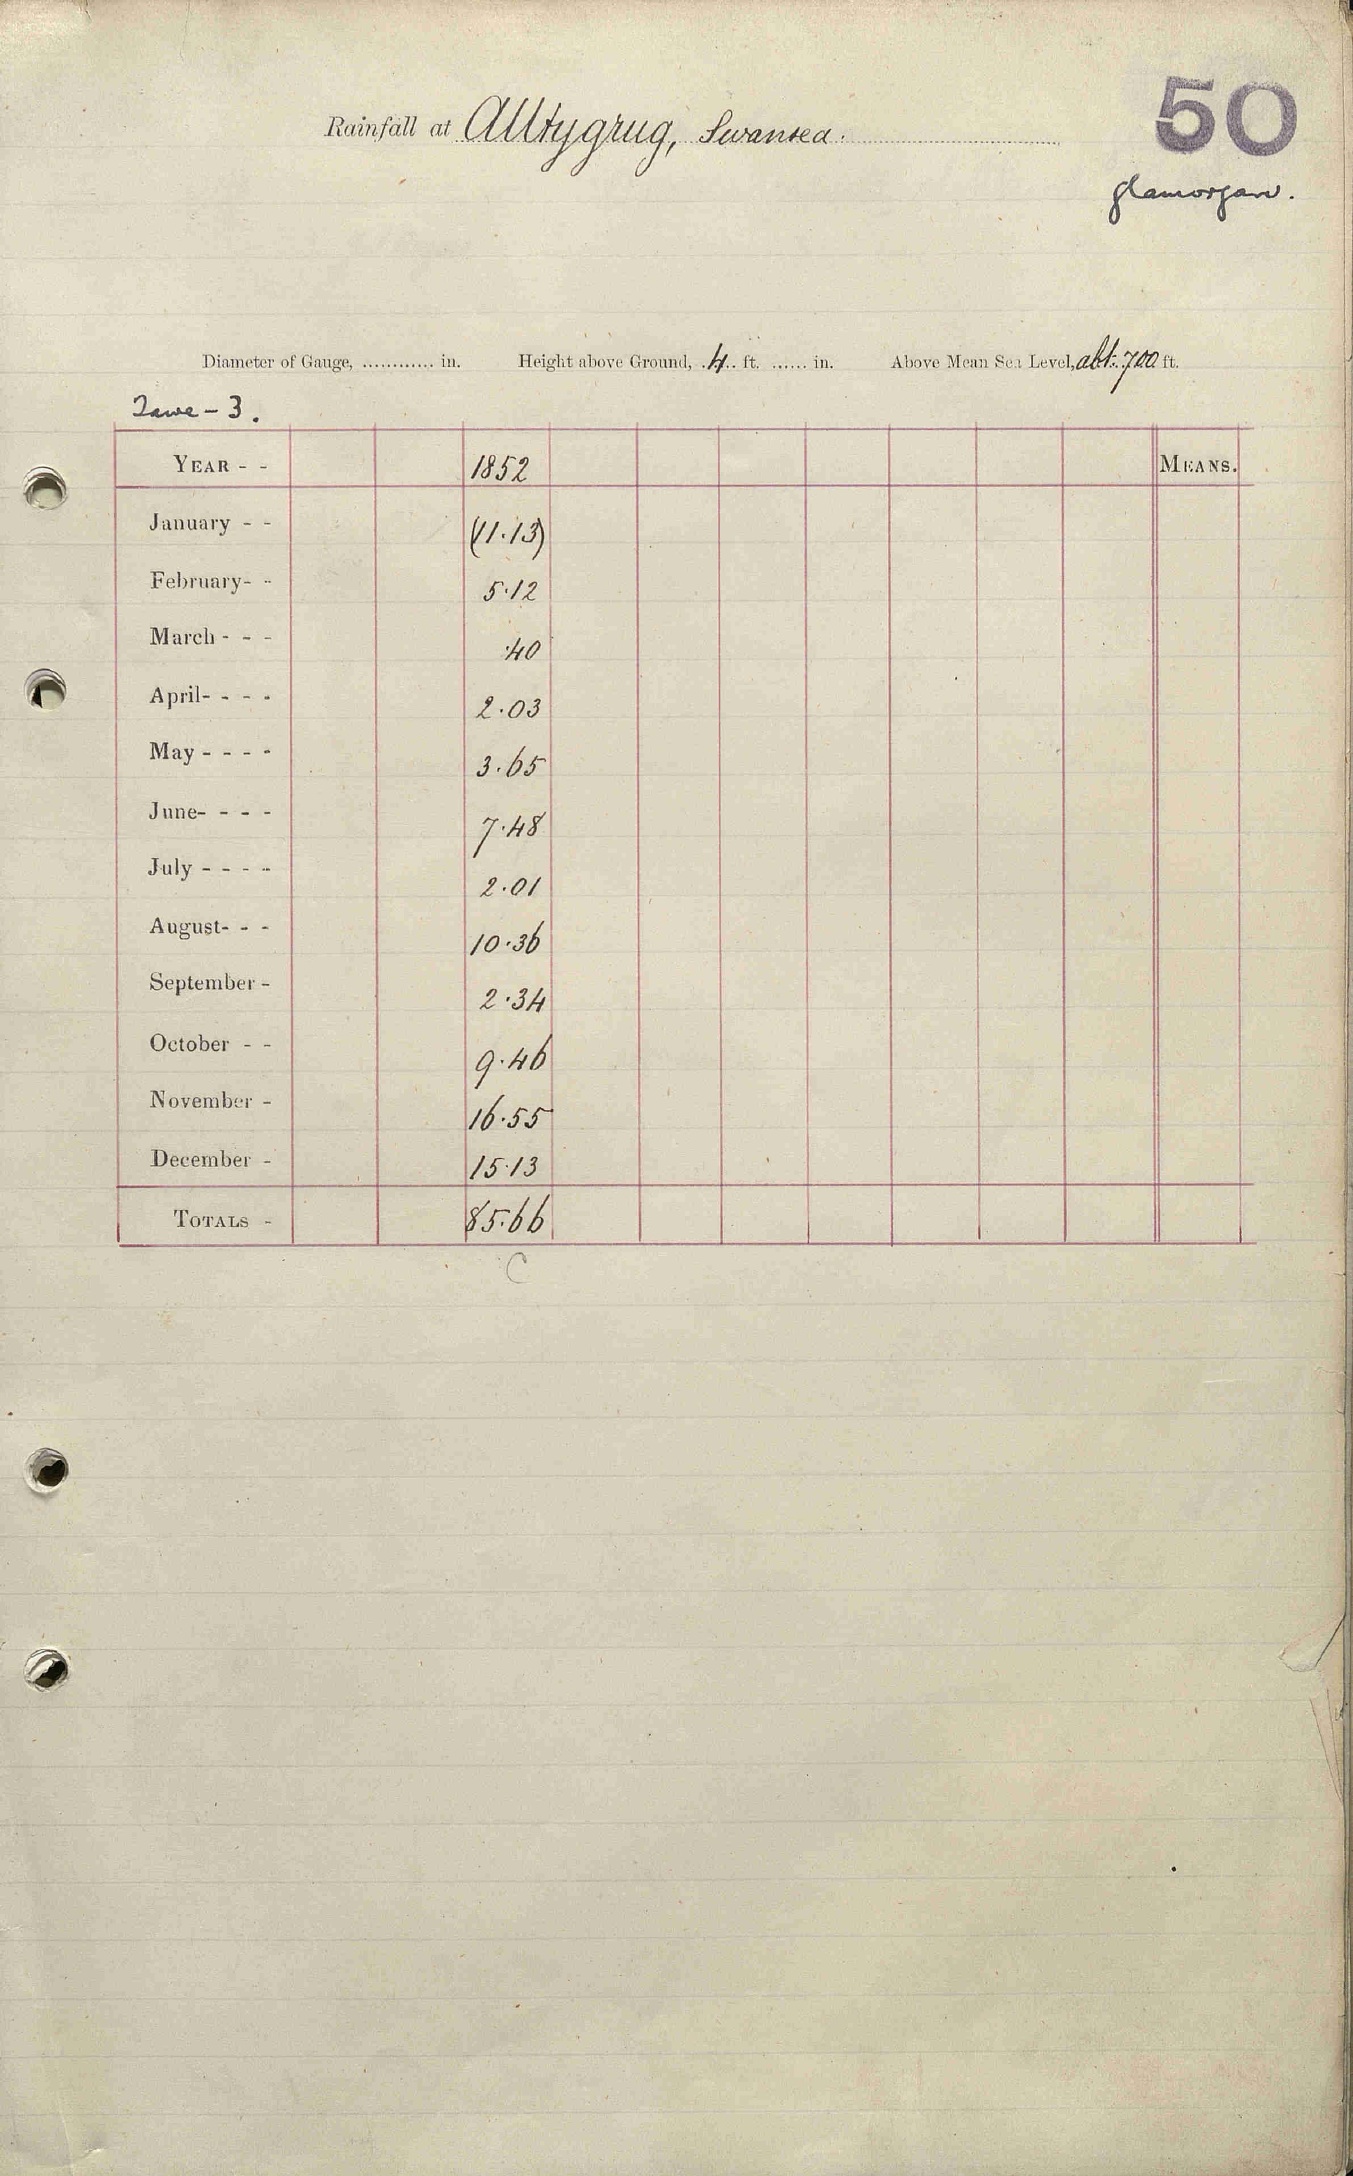 50
Rainfall at Alltygrug, Swansea.
Glamorgan.
Diameter of Gauge, ............ in. Height above Ground, .4.. ft. ...... in. Above Mean Sea Level, abt. 700 ft.
Tawe - 3.
YEAR - - 1852 MEANS.
January - - (11.13)
February- - 5.12
March - - - .40
April- - - - 2.03
May - - - - 3.65
June- - - - 7.48
July - - - - 2.01
August- - - 10.36
September - 2.34
October - - 9.46
November - 16.55
December - 15.13
TOTALS - 85.66
C